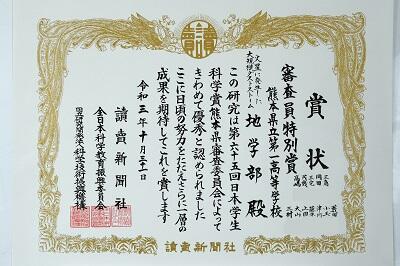 賞状
審査員特別賞
熊本県立第一高等学校
地学部 殿
火星に発生した
大規模ダストストーム
この研究は第六十五回日本学生
科学賞熊本県審査委員会によって
きわめて優秀と認められました
ここに日頃の努力をたたえさらに一層の
成果を期待してこれを賞します
令和三年十月三十一日
讀賣新聞社
全日本科学教育振興委員会
国立研究開発法人科学技術振興機構
讀賣新聞社